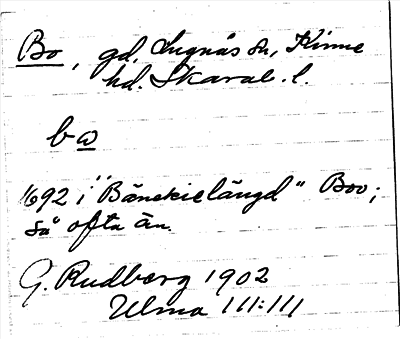 Bo, gd, Lugnås sn, Kinne
hd. Skarab. l.
bω
1692 i "Bänskielängd" Boo;
så ofta än.
G. Rudberg 1902
Ulma 111:111